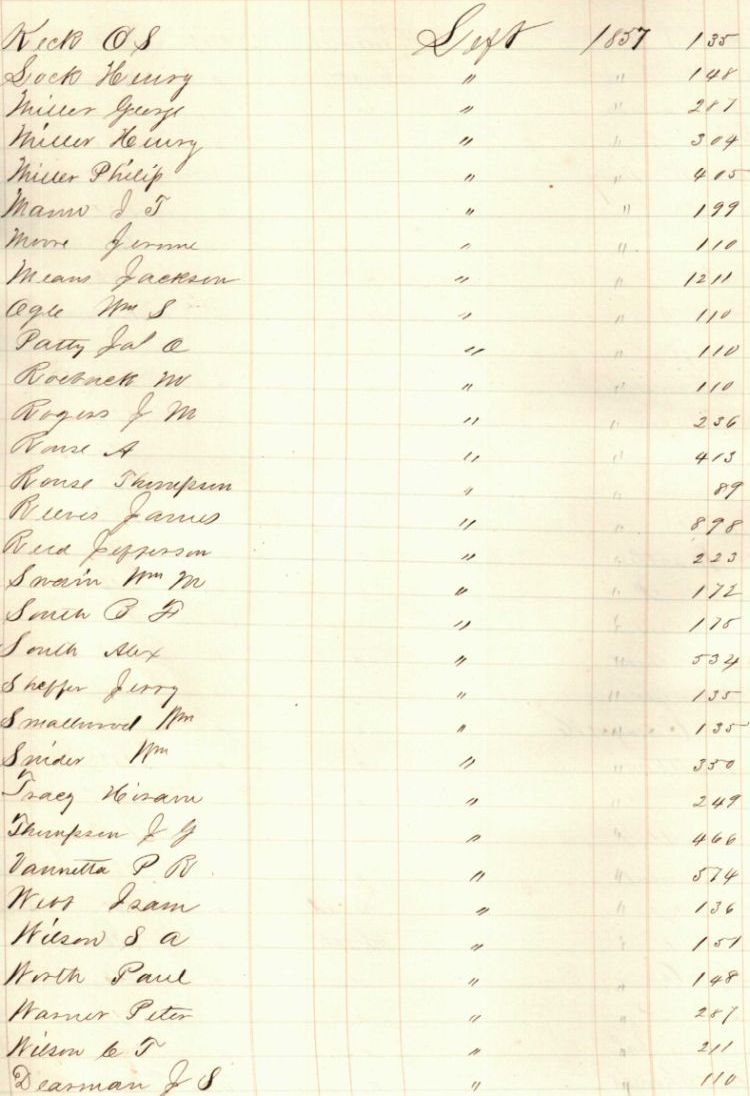 Keck O S Left 1857 135
Lock Henry " " 148
Miller George " " 287
Miller Henry " " 304
Miller Philip " " 405
Mann J T " " 199
Moore Jerome " " 110
Means Jackson " " 1211
Ogle Wm S " " 110
Patty Jas O " " 110
Roebuck M " " 110
Rogers J M " " 236
Rouse A " " 413
Rouse Thompson " " 89
Reeves James " " 898
Reed Jefferson " " 223
Swain Wm M " " 172
South B F " " 175
South Alex " " 534
Sheffer Jerry " " 135
Smallwood Wm " " 135
Snider Wm " " 350
Tracy Hiram " " 249
Thompson J G " " 466
Vannetta P R " " 574
West Isam " " 136
Wilson S A " " 151
Worth Paul " " 148
Warner Peter " " 287
Wilson C T " " 211
Dearman J S " " 110